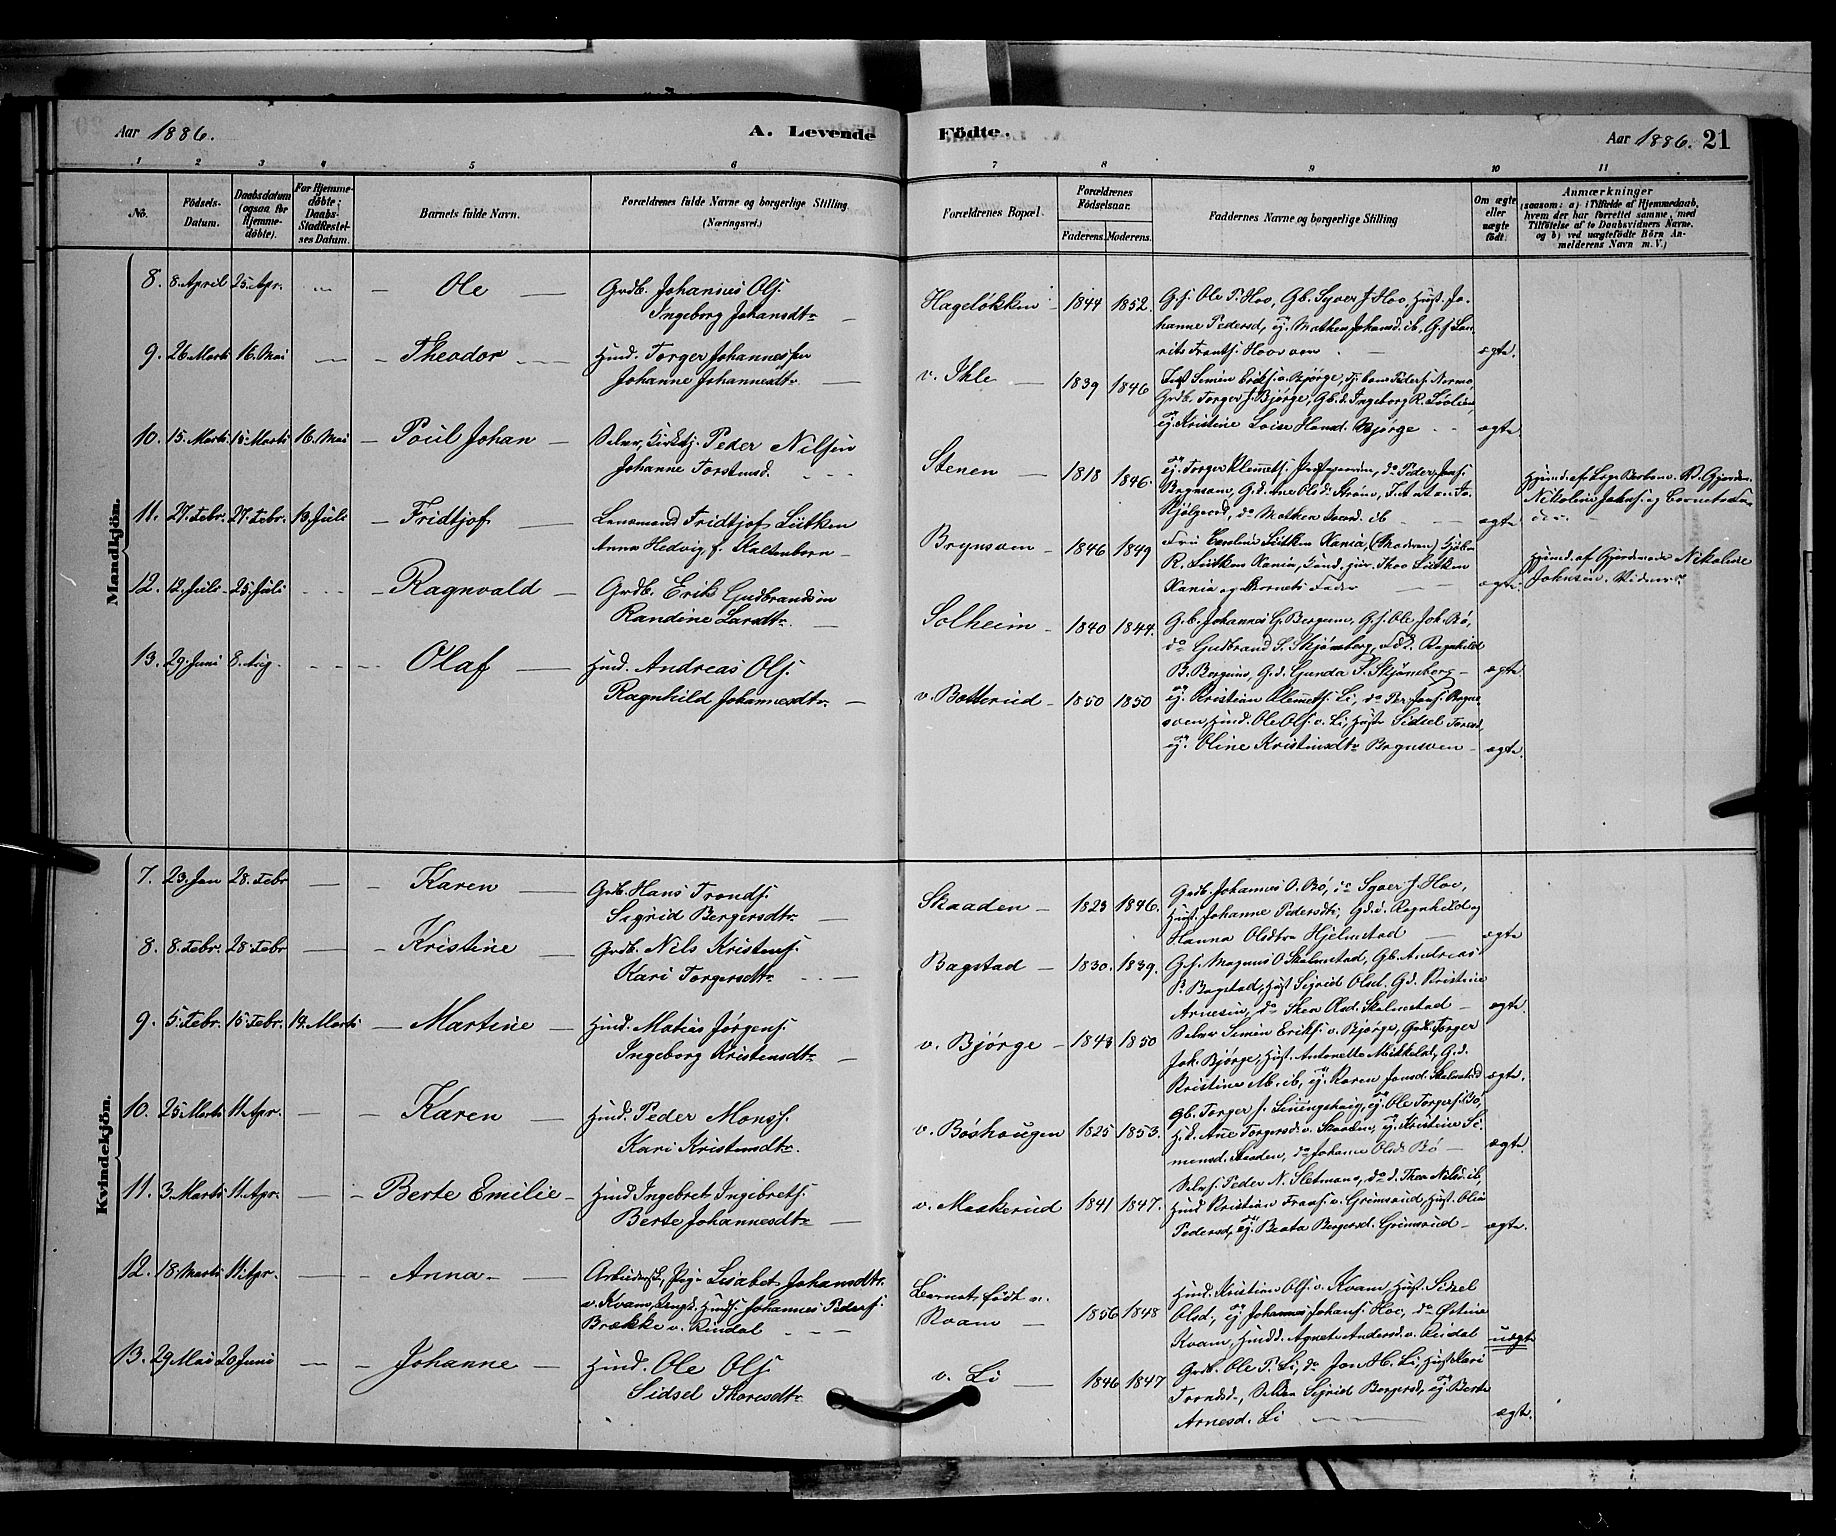 Aar 1886. A. Levende Födte. Aar 1886. 21
1 2 3 4 5 6 7 8 9 10 11
No.
Födsels-Datum.
Daabsdatum (ogsaa for Hjemme-döbte).
For Hjemme-döbte; Daabs-Stadfæstelses Datum.
Barnets fulde Navn.
Forældrenes fulde Navne og borgerlige Stilling (Næringsvei.)
Forældrenes Bopæl.
Forældrenes Födselsaar.
Faderens. Moderens.
Faddernes Navne og borgerlige Stilling
Om ægte eller uægte födt.
Anmærkninger
(saasom: a) i Tilfælde af Hjemmedaab,
hvem der har forrettet samme, med
Tilföielse af to Daabsvidners Navne.
og b) ved uægtefödte Börn An-
melderens Navn m. V.)
Mandkjön.
8. 8. April 25. Apr. Ole Grdb. Johannes Ols.
Ingeborg Johansdtr
Hageløkken 1844 1852.
G.f. Ole P. Hov, Gb. Syver J. Hov, Hust. Jo-
hanne Pedersd, Mathea Johansd. ib, G.f. Lau-
rits Frants. ægte.
9. 26 Marts 16. Mai Theodor Hmd. Torger Johannessen
Johanne Johannesdtr.
v. Ihle 1839 1846
Simen Eriks. v. Bjørge,
Grdb. Torger J. Bjørge, Gb.d. Ingeborg R.
Kristine Loise Hansd. Bjørge ægte.
10. 15. Marts 15. Marts 16. Mai Poul Johan Selv. Kirketj. Peder Nilsen
Johanne Torstensd.
Stenen 1818 1846.
Torger Klemets. do Peder Jons.
Brynsven, G.d. Ane Olsd. Strøm,
do Mathea ib ægte
Hjemd. af
Nikoline Johns. og Barnets
11. 27. Febr. 27. Febr. 18. Juli Fridtjof Lensmand Fridtjof Lütken
Anna Hedvig, f. Kaltenborn
Brynsven 1846 1849
Fru Lütken Xania,
R. Lütken Xania, jur. Thoo Lütken
Xania og Barnets Fader ægte.
Hjemd. af Gjordemoder Nikoline
Johnsen,
12. 12. Juli 25. Juli Ragnvald Grdb. Erik Gudbrandsen
Randine Larsdtr.
Solheim 1840 1844.
G.b. Johannes G. Bergum, G.f. Ole Joh. Bø,
do Gudbrand S. Skjønsberg, Ragnhild
R. Bergum, G.d. Gunda S. Skjønsberg ægte
13. 29. Juni 8. Aug. Olaf Hmd. Andreas Ols.
Ragnhild Johannesdtr
v. Botterud 1850 1850
Kristian Klemets. Li, do Per Jons. Bryn-
sven, Hmd. Ole Ols. v. Li, Hust Sidsel Toresd,
Oline Kristensdtr Brynsven ægte.
Kvindekjön.
7. 23. Jan 28. Febr Karen Grdb. Hans Tronds.
Sigrid Bergersdtr.
Skaaden 1823 1846.
Grdb. Johannes O. Bø, do Syver J. Hov,
Hust. Johanne Pedersdtr, Gd.d. Ragnhild og
Hanna Olsdtre Hjelmstad ægte
8. 8. Febr. 28. Febr Kristine Grdb. Nils Kristens.
Kari Torgersdtr.
Bagstad 1830. 1839.
G.f. Magnus O Skalmstad, Gb. Andreas
P. Bagstad, Hust Sigrid Olsd. G.d. Kristine
Arnesen, do Olsd. Skalmstad ægte.
9. 5. Febr. 15 Febr. 14. Marts Martine Hmd. Matias Jørgens.
Ingeborg Kristensdtr.
v. Bjørge 1843 1850
Selver Simen Eriks. v. Bjørge, Grdb. Torger
Joh. Bjørge, Hust. Antonette Mikkelsd, G.d.
Kristine M. ib, Karen Jonsd. Skalmstad ægte.
10. 25 Marts 11 Apr. Karen Hmd. Peder Monss.
Kari Kristensdtr.
v. Bøshougen 1825 1853.
Gb. Torger J. Ole Torgers. Bø,
H.d. Ane Torgersd. v. Skaaden, Kristine Si-
mensd. Skaaden, do Johanne Olsd. Bø ægte.
11. 3. Marts 11. Apr. Berte Emilie Hmd Ingebret Ingebrets.
Berte Johannesdtr
v. Maskerud 1841 1847.
Selvs. Peder N. Sletmoen, do d. Thea Nilsd. ib,
Hmd Kristian Frans. v. Grimsrud, Hust. Olia
Pedersd, Beata Bergersd. Grimsrud ægte.
12. 18. Marts 11. Apr. Anna Arbeidersk, Pige Lisabet Johansdtr.
v. Kvam, Johannes Peders.
Brække v. Rindal
Barnet født v.
Kvam 1856 1848
Hmd. Kristian Ols. v. Kvam, Hust. Sidsel
Olsd., Johannes Johans. Hov, do Østine
Kvam, Hmdd. Agnete Andersd. v. Rindal uægte
13. 29 Mai 20 Juni Johanne Hmd. Ole Ols.
Sidsel Thoresdtr
v. Li 1846 1847
Grdb. Ole P. Li, do Jon H. Li, Hust Kari
Trondsd., Sigrid Bergersd, Berte
Arnesd. Li ægte.